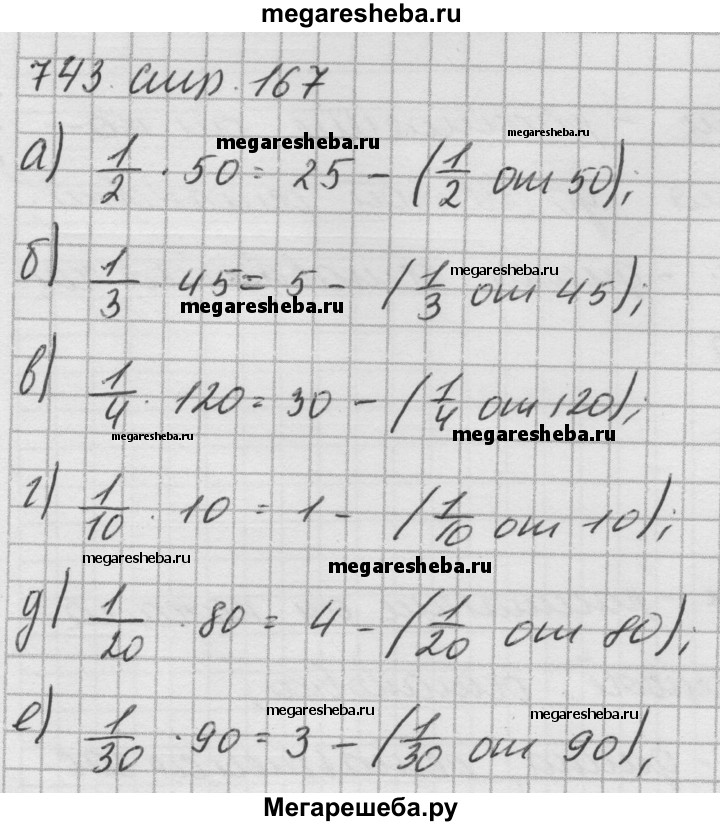 megaresheba.ru
743 стр. 167
megaresheba.ru megaresheba.ru
а) 1/2 · 50 = 25 - (1/2 от 50);
megaresheba.ru
б) 1/3 · 45 = 5 - (1/3 от 45);
megaresheba.ru
в) 1/4 · 120 = 30 - (1/4 от 120);
megaresheba.ru megaresheba.ru
г) 1/10 · 10 = 1 - (1/10 от 10);
megaresheba.ru megaresheba.ru
д) 1/20 · 80 = 4 - (1/20 от 80);
megaresheba.ru megaresheba.ru
е) 1/30 · 90 = 3 - (1/30 от 90),
Мегарешеба.ру